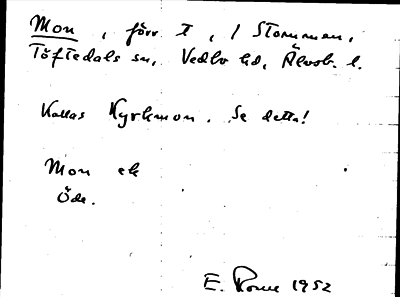 Mon, förr T, / Stommen,
Töftedals sn, Vedbo hd, Älvsb. l.
Kallas Kyrkmon. Se detta!
Mon ek
Öde.
E. 1952